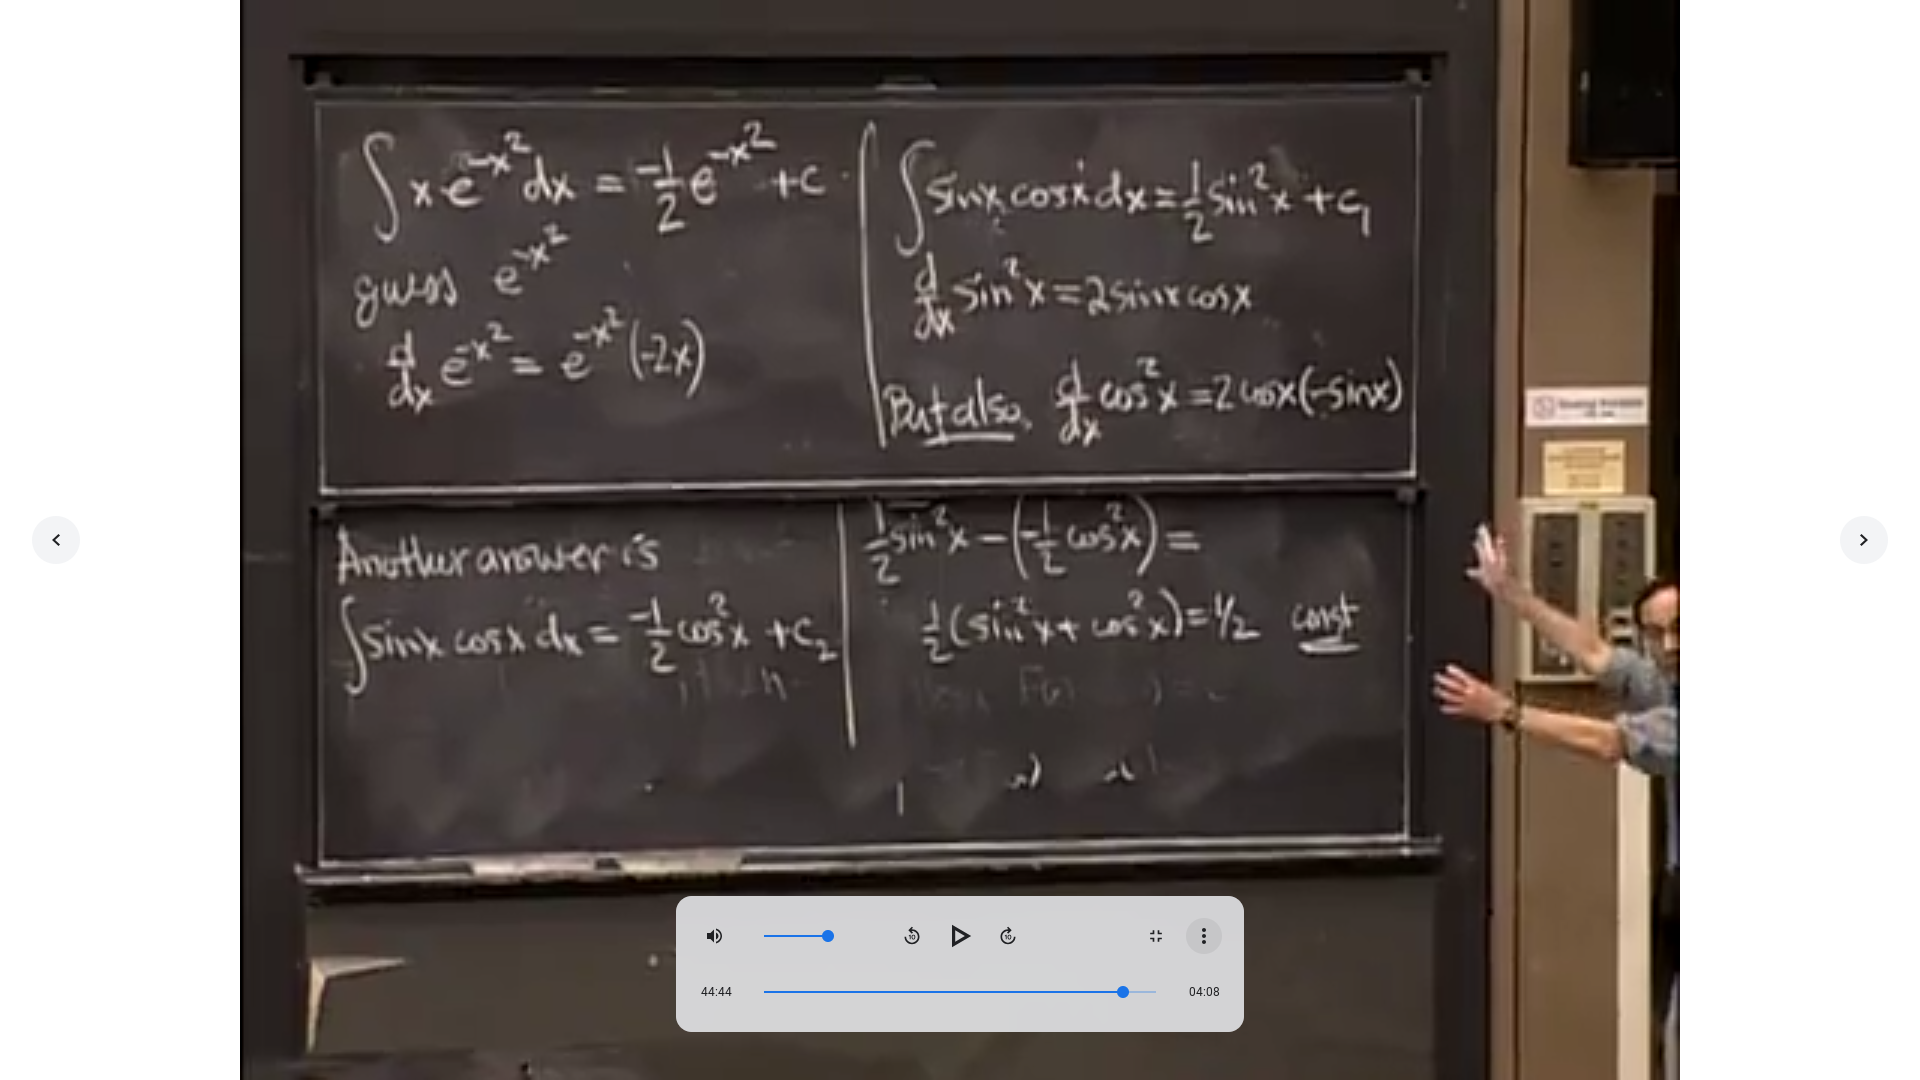 ∫ x e^{-x^2} dx = -1/2 e^{-x^2} + c
guess e^{-x^2}
d/dx e^{-x^2} = e^{-x^2} (-2x)
∫ sinx cosx dx = 1/2 sin^2 x + c_1
d/dx sin^2 x = 2 sinx cosx
But also, d/dx cos^2 x = 2 cosx(-sinx)
Another answer is
∫ sinx cosx dx = -1/2 cos^2 x + c_2
1/2 sin^2 x - (-1/2 cos^2 x) =
1/2 (sin^2 x + cos^2 x) = 1/2 const
10 10
44:44 04:08